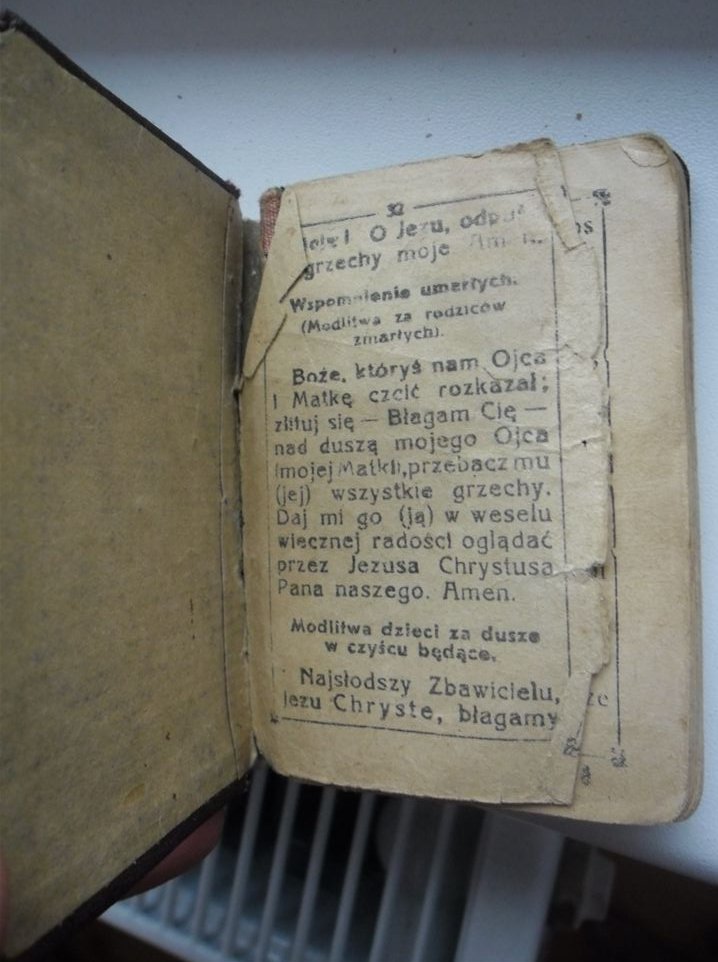 32
O Jezu,
grzechy moje Amen.
Wspomnienie umarłych.
(Modlitwa za rodziców
zmarłych).
Boże, któryś nam Ojca
i Matkę czcić rozkazał;
zlituj się — Błagam Cię —
nad duszą mojego Ojca
(mojej Matki), przebacz mu
(jej) wszystkie grzechy.
Daj mi go (ją) w weselu
wiecznej radości oglądać
przez Jezusa Chrystusa
Pana naszego. Amen.
Modlitwa dzieci za dusze
w czyścu będące.
Najsłodszy Zbawicielu,
Jezu Chryste, błagamy